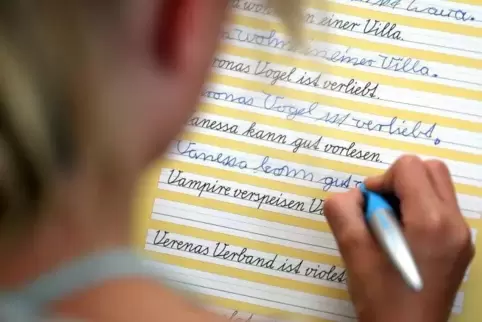 Laura.
einer Villa.
einer Villa.
ronas Vogel ist verliebt.
ronas Vogel ist verliebt.
anessa kann gut vorlesen
Vanessa kann gut
Vampire verspeisen V
Verenas Verband ist violet